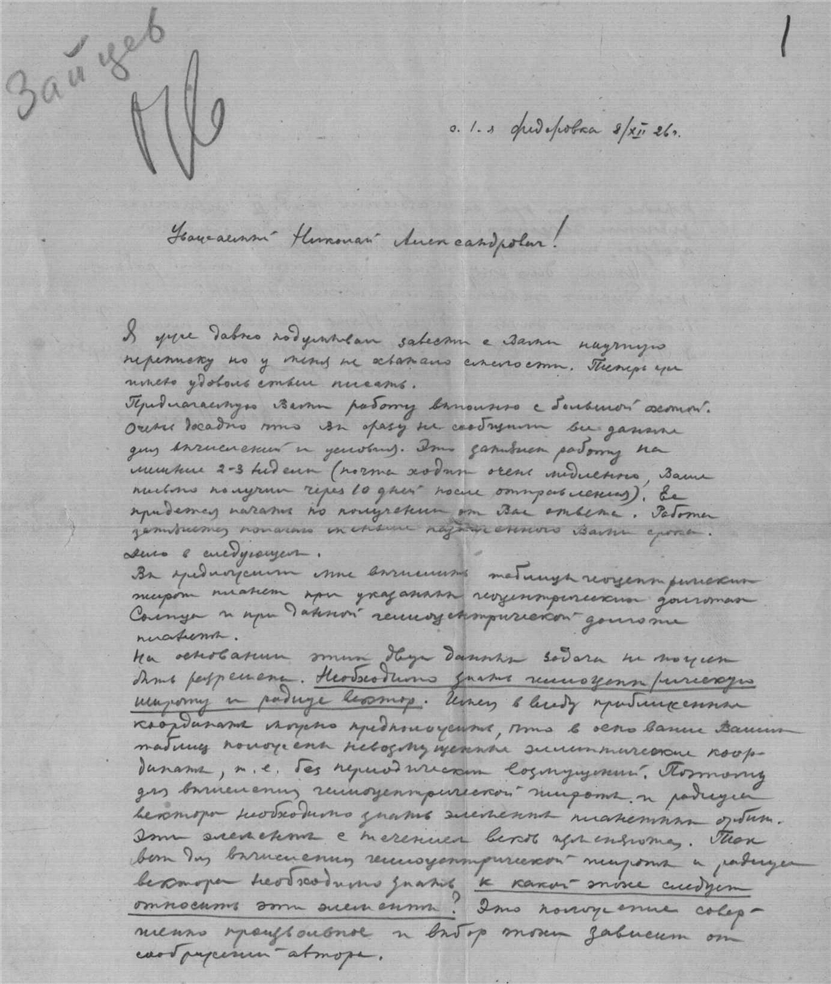 Зайцев
1
с. 1-я Федоровка 8/XII 26 г.
Уважаемый Николай Александрович!
Я уже давно подумывал завести с Вами научную
переписку но у меня не хватало смелости. Теперь уже
имею удовольствие писать.
Предлагаемую Вами работу выполню с большой охотой.
Очень досадно что Вы сразу не сообщили все данные
для вычислений и условия. Это затянет работу на
лишние 2-3 недели (почта ходит очень медленно, Ваше
письмо получил через 10 дней после отправления). Ее
придется начать по получении от Вас ответа. Работа
затянется полагаю не меньше назначенного Вами срока.
Дело в следующем.
Вы предложили мне вычислить таблицы геоцентрических
широт планет при указанных геоцентрических долготах
Солнца и при данной гелиоцентрической долготе
планеты.
На основании этих двух данных задача не может
быть разрешена. Необходимо знать гелиоцентрическую
широту и радиус вектор. Имея в виду приближенные
координаты можно предположить, что в основание Ваших
таблиц положены невозмущенные эллиптические коор-
динаты, т. е. без периодических возмущений. Поэтому
для вычисления гелиоцентрической широты и радиуса
вектора необходимо знать элементы планетных орбит.
Эти элементы с течением веков изменяются. Так
вот для вычисления гелиоцентрической широты и радиуса
вектора необходимо знать к какой эпохе следует
относить эти элементы? Это положение совер-
шенно произвольное и выбор эпохи зависит от
соображений автора.